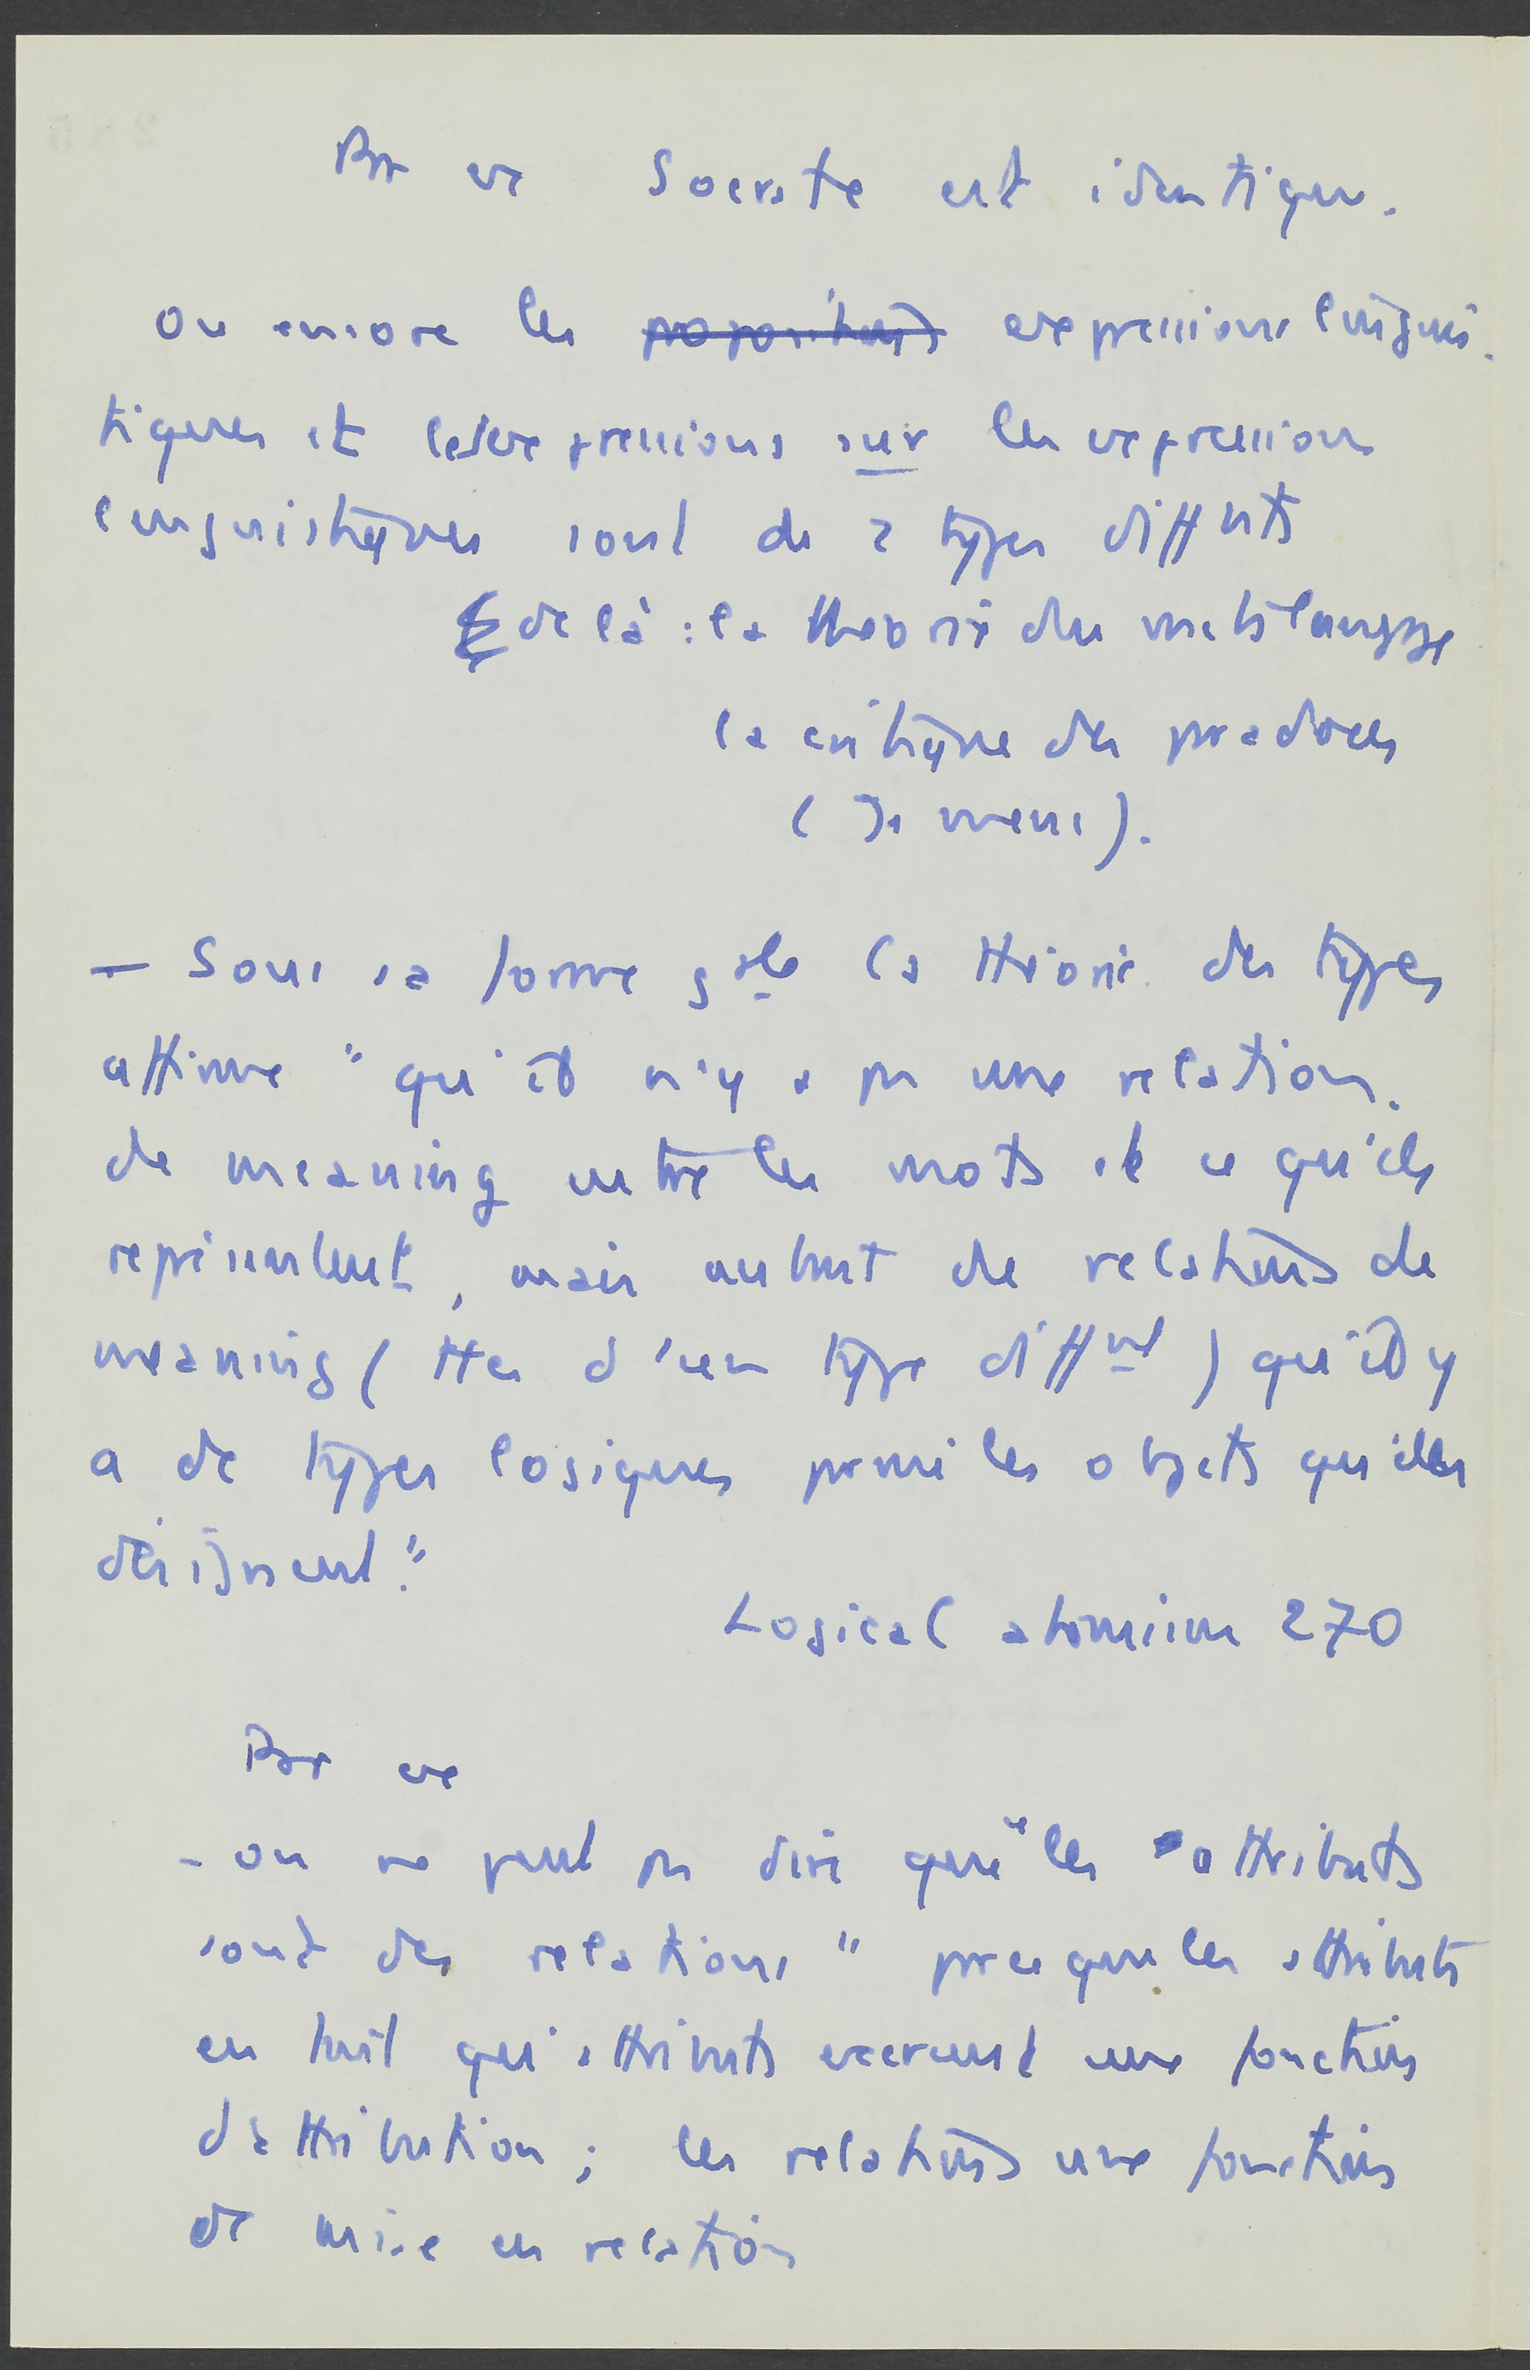 Par ex Socrate est identique.
ou encore les propositions expressions linguis-
tiques et les expressions sur les expressions
linguistiques sont de 2 types diffnts
de là : la théorie du métalangage
la critique des paradoxes
(Je mens).
— Sous sa forme gale la théorie des types
affirme "qu'il n'y a pas une relation
de meaning entre les mots et ce qu'ils
représentent, mais autant de relations de
meaning (ttes d'un type diffnt) qu'il y
a de types logiques parmi les objets qu'elles
désignent."
Logical atomism 270
Par ex
- on ne peut pas dire que "les attributs
sont des relations" parce que les attributs
en tant qu'attributs exercent une fonction
d'attribution ; les relations une fonction
de mise en relation